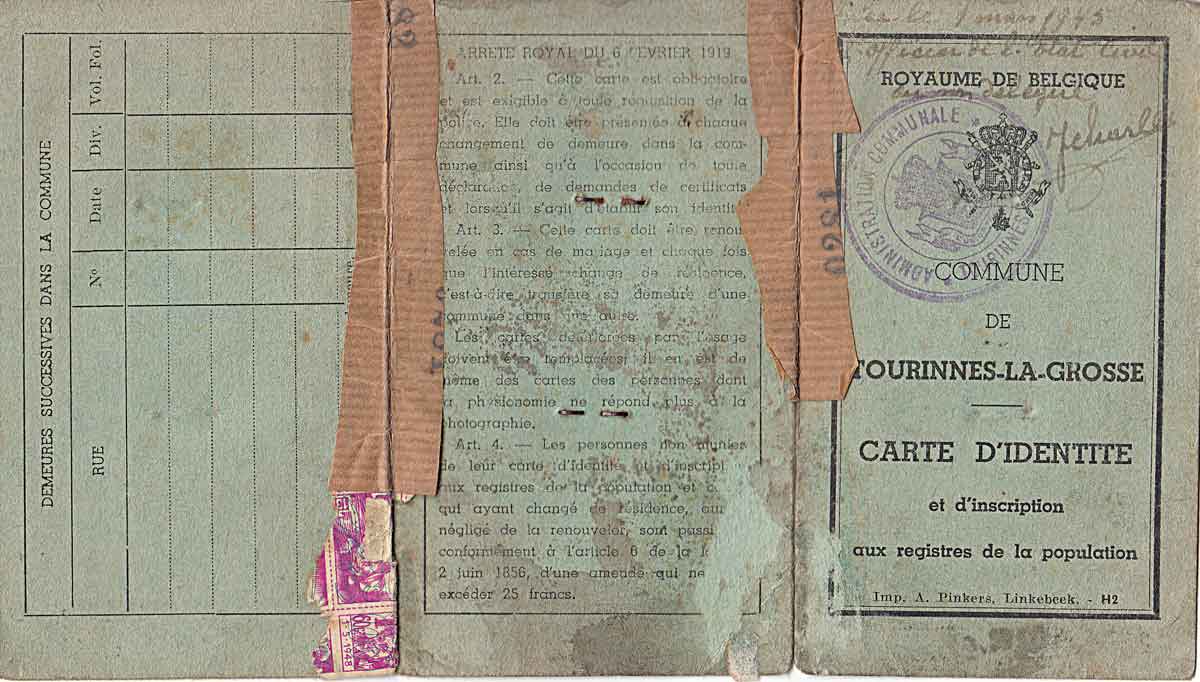 DEMEURES SUCCESSIVES DANS LA COMMUNE
Vol. Fol.
Div.
Date
N°
RUE
1-5-1948
ARRETE ROYAL DU 6 FEVRIER 1919
Art. 2. — Cette carte est obligatoire
et est exigible à toute réquisition de la
police. Elle doit être présentée à chaque
changement de demeure dans la com-
mune ainsi qu'à l'occasion de toute
déclaration, de demandes de certificats
et lorsqu'il s'agit d'établir son identité
Art. 3. — Cette carte doit être renou
velée en cas de mariage et chaque fois
que l'intéressé change de résidence,
c'est-à-dire transfère sa demeure d'une
commune dans une autre.
Les cartes détériorées par l'usage
doivent être remplacées; il en est de
même des cartes des personnes dont
la physionomie ne répond plus à la
photographie.
Art. 4. — Les personnes non munies
de leur carte d'identité et d'inscript
aux registres de la population et
qui ayant changé de résidence,
négligé de la renouveler, sont passi
conformément à l'article 6 de la
2 juin 1856, d'une amende qui ne
excéder 25 francs.
0281
le 1 mars 1945
officier de l'état civil
ROYAUME DE BELGIQUE
ADMINISTRATION COMMUNALE
COMMUNE
DE
TOURINNES-LA-GROSSE
CARTE D'IDENTITE
et d'inscription
aux registres de la population
Imp. A. Pinkers, Linkebeek. - H2